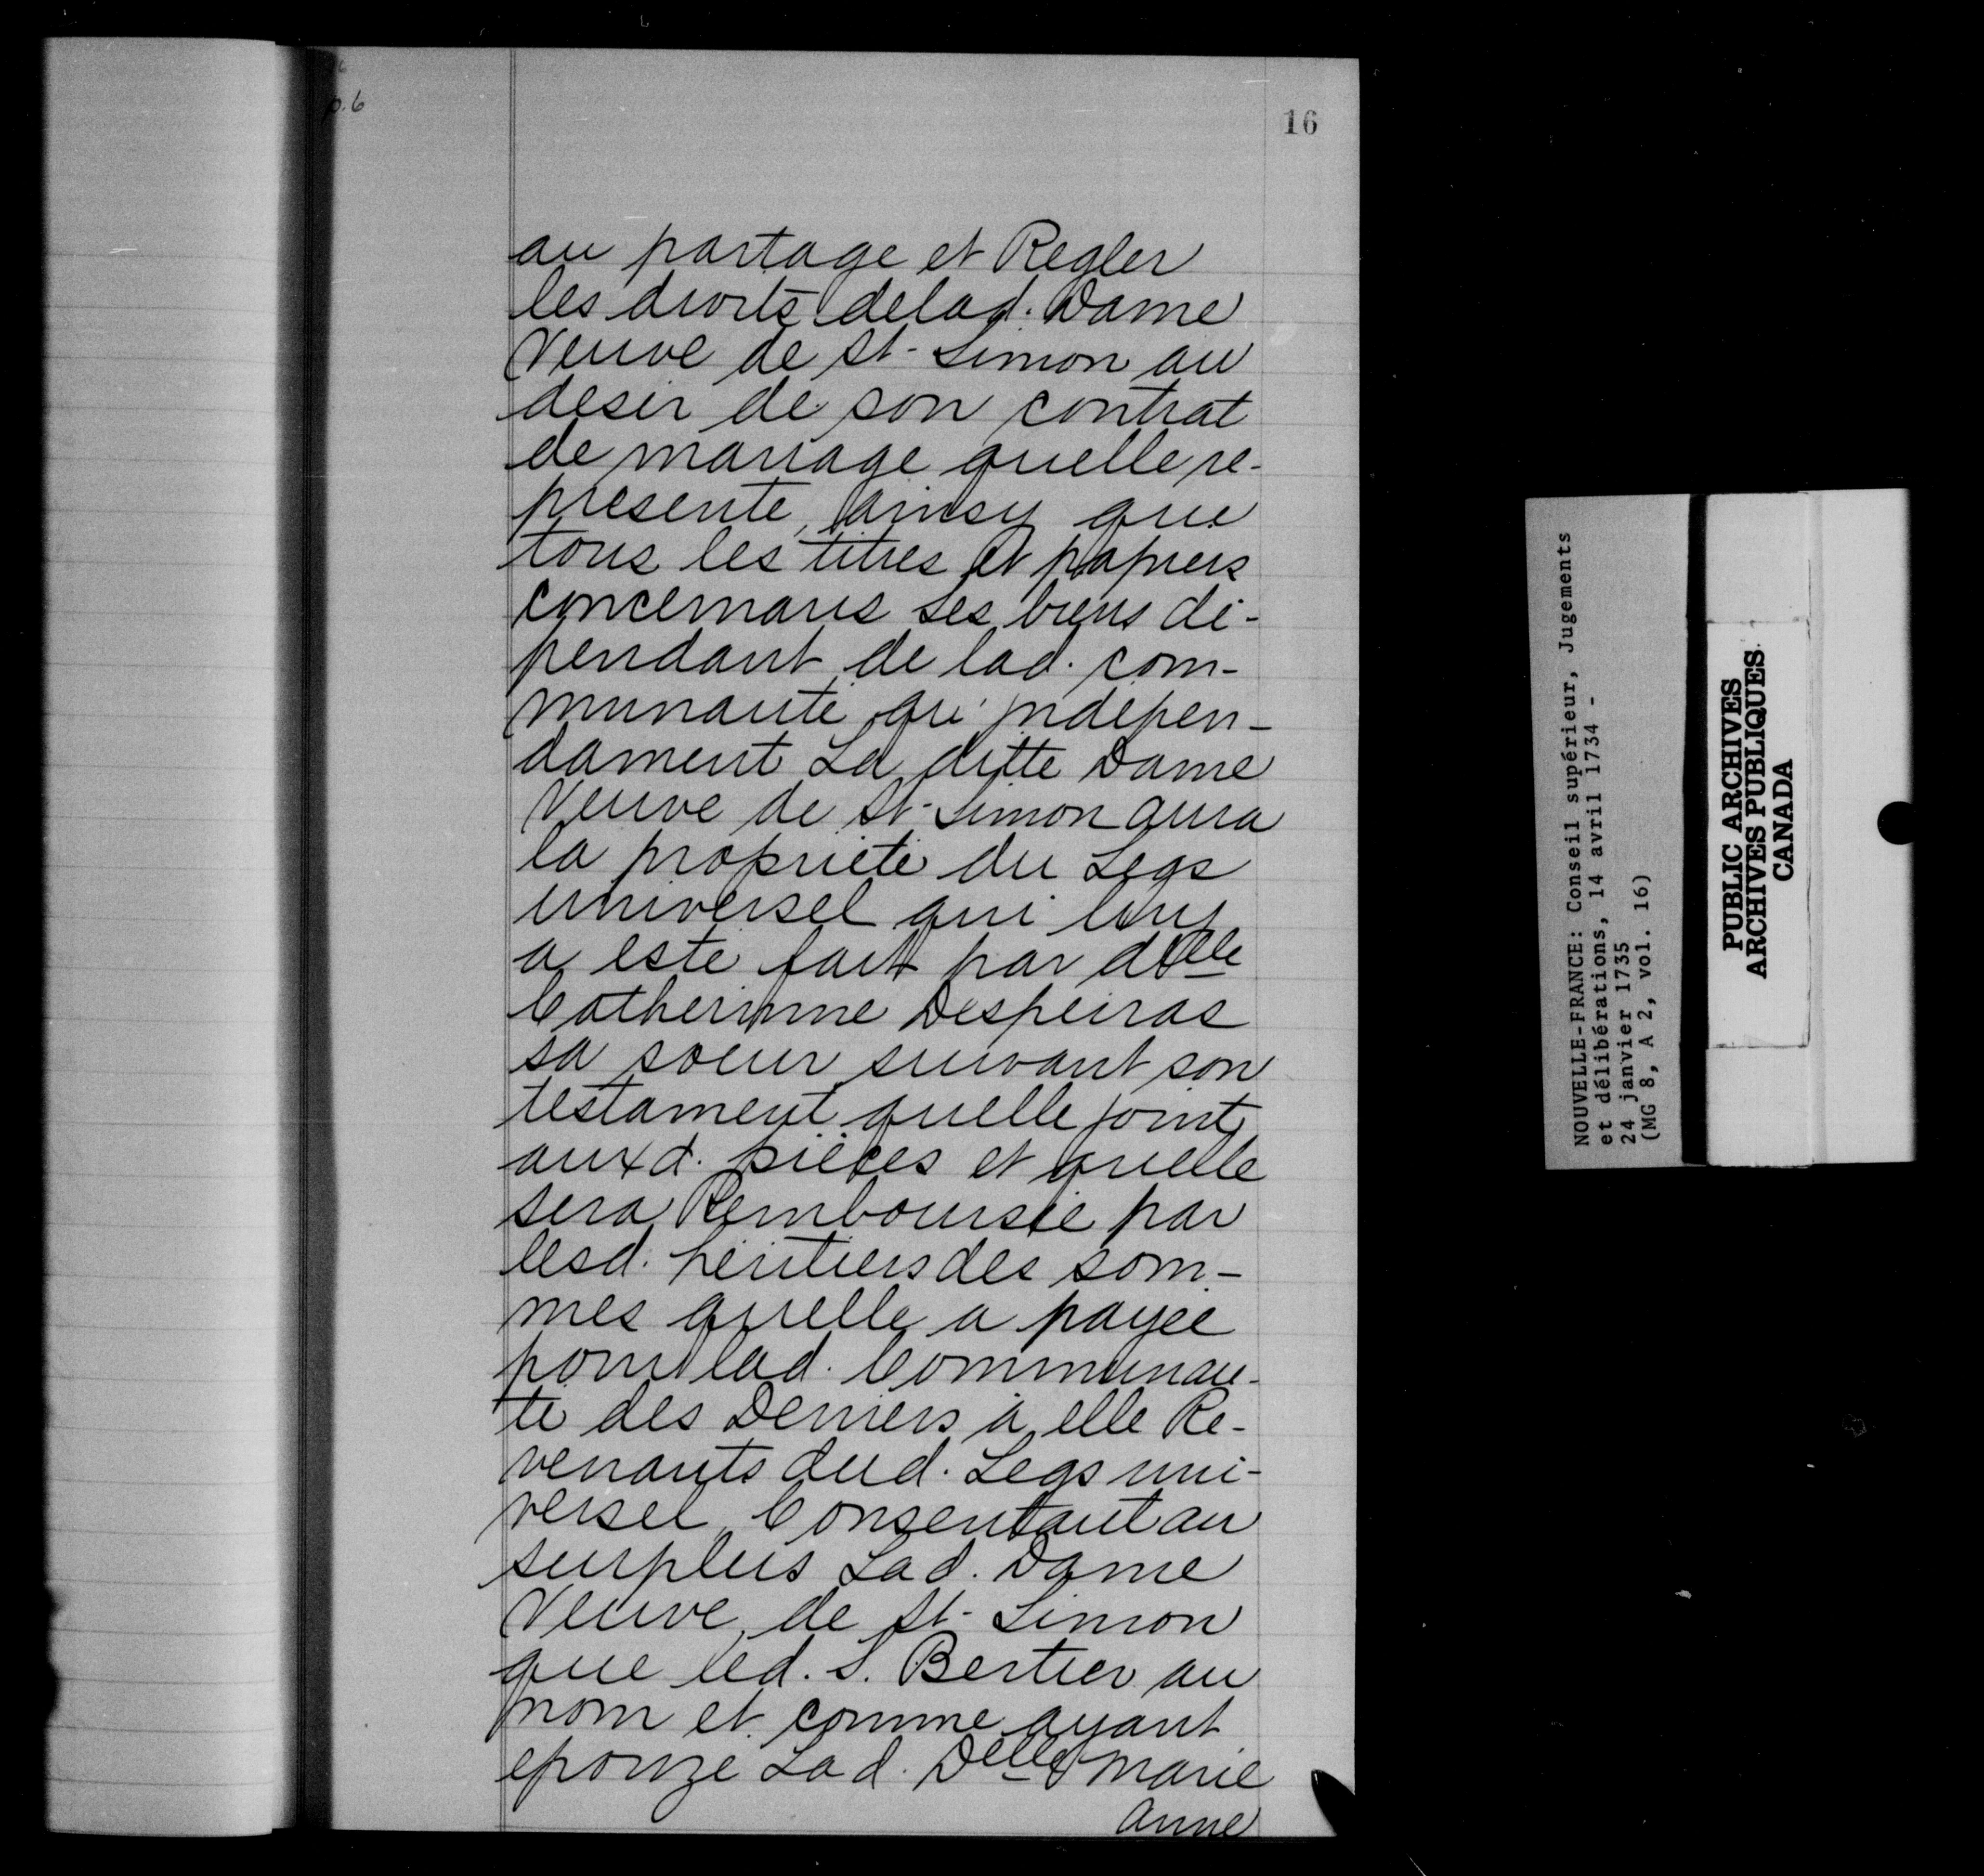 p. 6
16
au partage et Regler
les droits delad. Dame
Veuve de St-Simon au
desir de son contrat
de mariage quelle re-
presente, ainsy que
tous les titres et papiers
concernans ses biens dé-
pendant de lad. com-
munauté qu'indépen-
dament La ditte Dame
Veuve de St-Simon aura
la propriété du Legs
universel qui luy
a esté fait par dlle
Catherinne Despeiras
sa soeur suivant son
testament quelle joint
auxd. pièces et quelle
sera Remboursée par
lesd. héritiers des som-
mes quelle a payée
pour lad. Communau-
té des Deniers à elle Re-
venants dud. Legs uni-
versel, Consentant au
surplus Lad. Dame
Veuve, de St-Simon
que led. S. Bertier au
nom et comme ayant
epouze Lad. Delle Marie
Anne
NOUVELLE-FRANCE: Conseil supérieur, Jugements
et délibérations, 14 avril 1734 -
24 janvier 1735
(MG 8, A 2, vol. 16)
PUBLIC ARCHIVES
ARCHIVES PUBLIQUES
CANADA